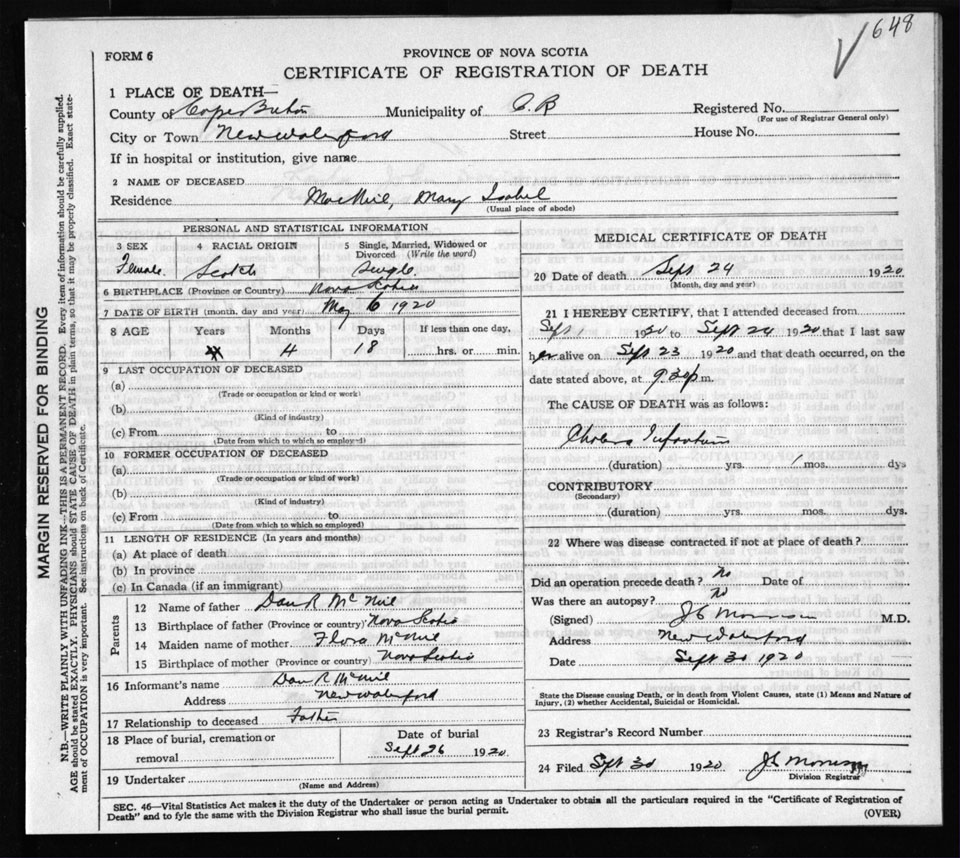 648
FORM 6
PROVINCE OF NOVA SCOTIA
CERTIFICATE OF REGISTRATION OF DEATH
1 PLACE OF DEATH—
County of Cape Breton Municipality of C. B Registered No.
(For use of Registrar General only)
City or Town New Waterford Street House No.
If in hospital or institution, give name
2 NAME OF DECEASED
Residence MacNeil, Mary Isabel
(Usual place of abode)
PERSONAL AND STATISTICAL INFORMATION
3 SEX 4 RACIAL ORIGIN 5 Single, Married, Widowed or Divorced (Write the word)
Female. Scotch Single.
6 BIRTHPLACE (Province or Country) Nova Scotia
7 DATE OF BIRTH (month, day and year) May 6 1920
8 AGE Years Months Days If less than one day,
4 18 hrs. or min.
9 LAST OCCUPATION OF DECEASED
(a)
(Trade or occupation or kind or work)
(b)
(Kind of industry)
(c) From to
(Date from which to which so employed)
10 FORMER OCCUPATION OF DECEASED
(a)
(Trade or occupation or kind of work)
(b)
(Kind of industry)
(c) From to
(Date from which to which so employed)
11 LENGTH OF RESIDENCE (In years and months)
(a) At place of death
(b) In province
(c) In Canada (if an immigrant)
Parents
12 Name of father Dan R McNeil
13 Birthplace of father (Province or country) Nova Scotia
14 Maiden name of mother Flora McNeil
15 Birthplace of mother (Province or country) Nova Scotia
16 Informant's name Dan R McNeil
Address New Waterford
17 Relationship to deceased Father
18 Place of burial, cremation or removal
Date of burial
Sept 26 1920
19 Undertaker
(Name and Address)
MEDICAL CERTIFICATE OF DEATH
20 Date of death Sept 24 1920
(Month, day and year)
21 I HEREBY CERTIFY, that I attended deceased from
Sept 1 1920 to Sept 24 1920 that I last saw
her alive on Sept 23 1920 and that death occurred, on the
date stated above, at 9.30 p m.
The CAUSE OF DEATH was as follows:
Cholera Infantum
(duration) yrs. 1 mos. dys
CONTRIBUTORY
(Secondary)
(duration) yrs. mos. dys.
22 Where was disease contracted if not at place of death?
Did an operation precede death? No Date of
Was there an autopsy? No
(Signed) J C Morrison M.D.
Address New Waterford
Date Sept 30 1920
State the Disease causing Death, or in death from Violent Causes, state (1) Means and Nature of
Injury, (2) whether Accidental, Suicidal or Homicidal.
23 Registrar's Record Number
24 Filed Sept 30 1920 J C Morrison
Division Registrar
SEC. 46—Vital Statistics Act makes it the duty of the Undertaker or person acting as Undertaker to obtain all the particulars required in the "Certificate of Registration of
Death" and to fyle the same with the Division Registrar who shall issue the burial permit.
(OVER)
MARGIN RESERVED FOR BINDING
N.B.—WRITE PLAINLY WITH UNFADING INK—THIS IS A PERMANENT RECORD. Every item of information should be carefully supplied.
AGE should be stated EXACTLY. PHYSICIANS should STATE CAUSE OF DEATH in plain terms, so that it may be properly classified. Exact state-
ment of OCCUPATION is very important. See instructions on back of Certificate.